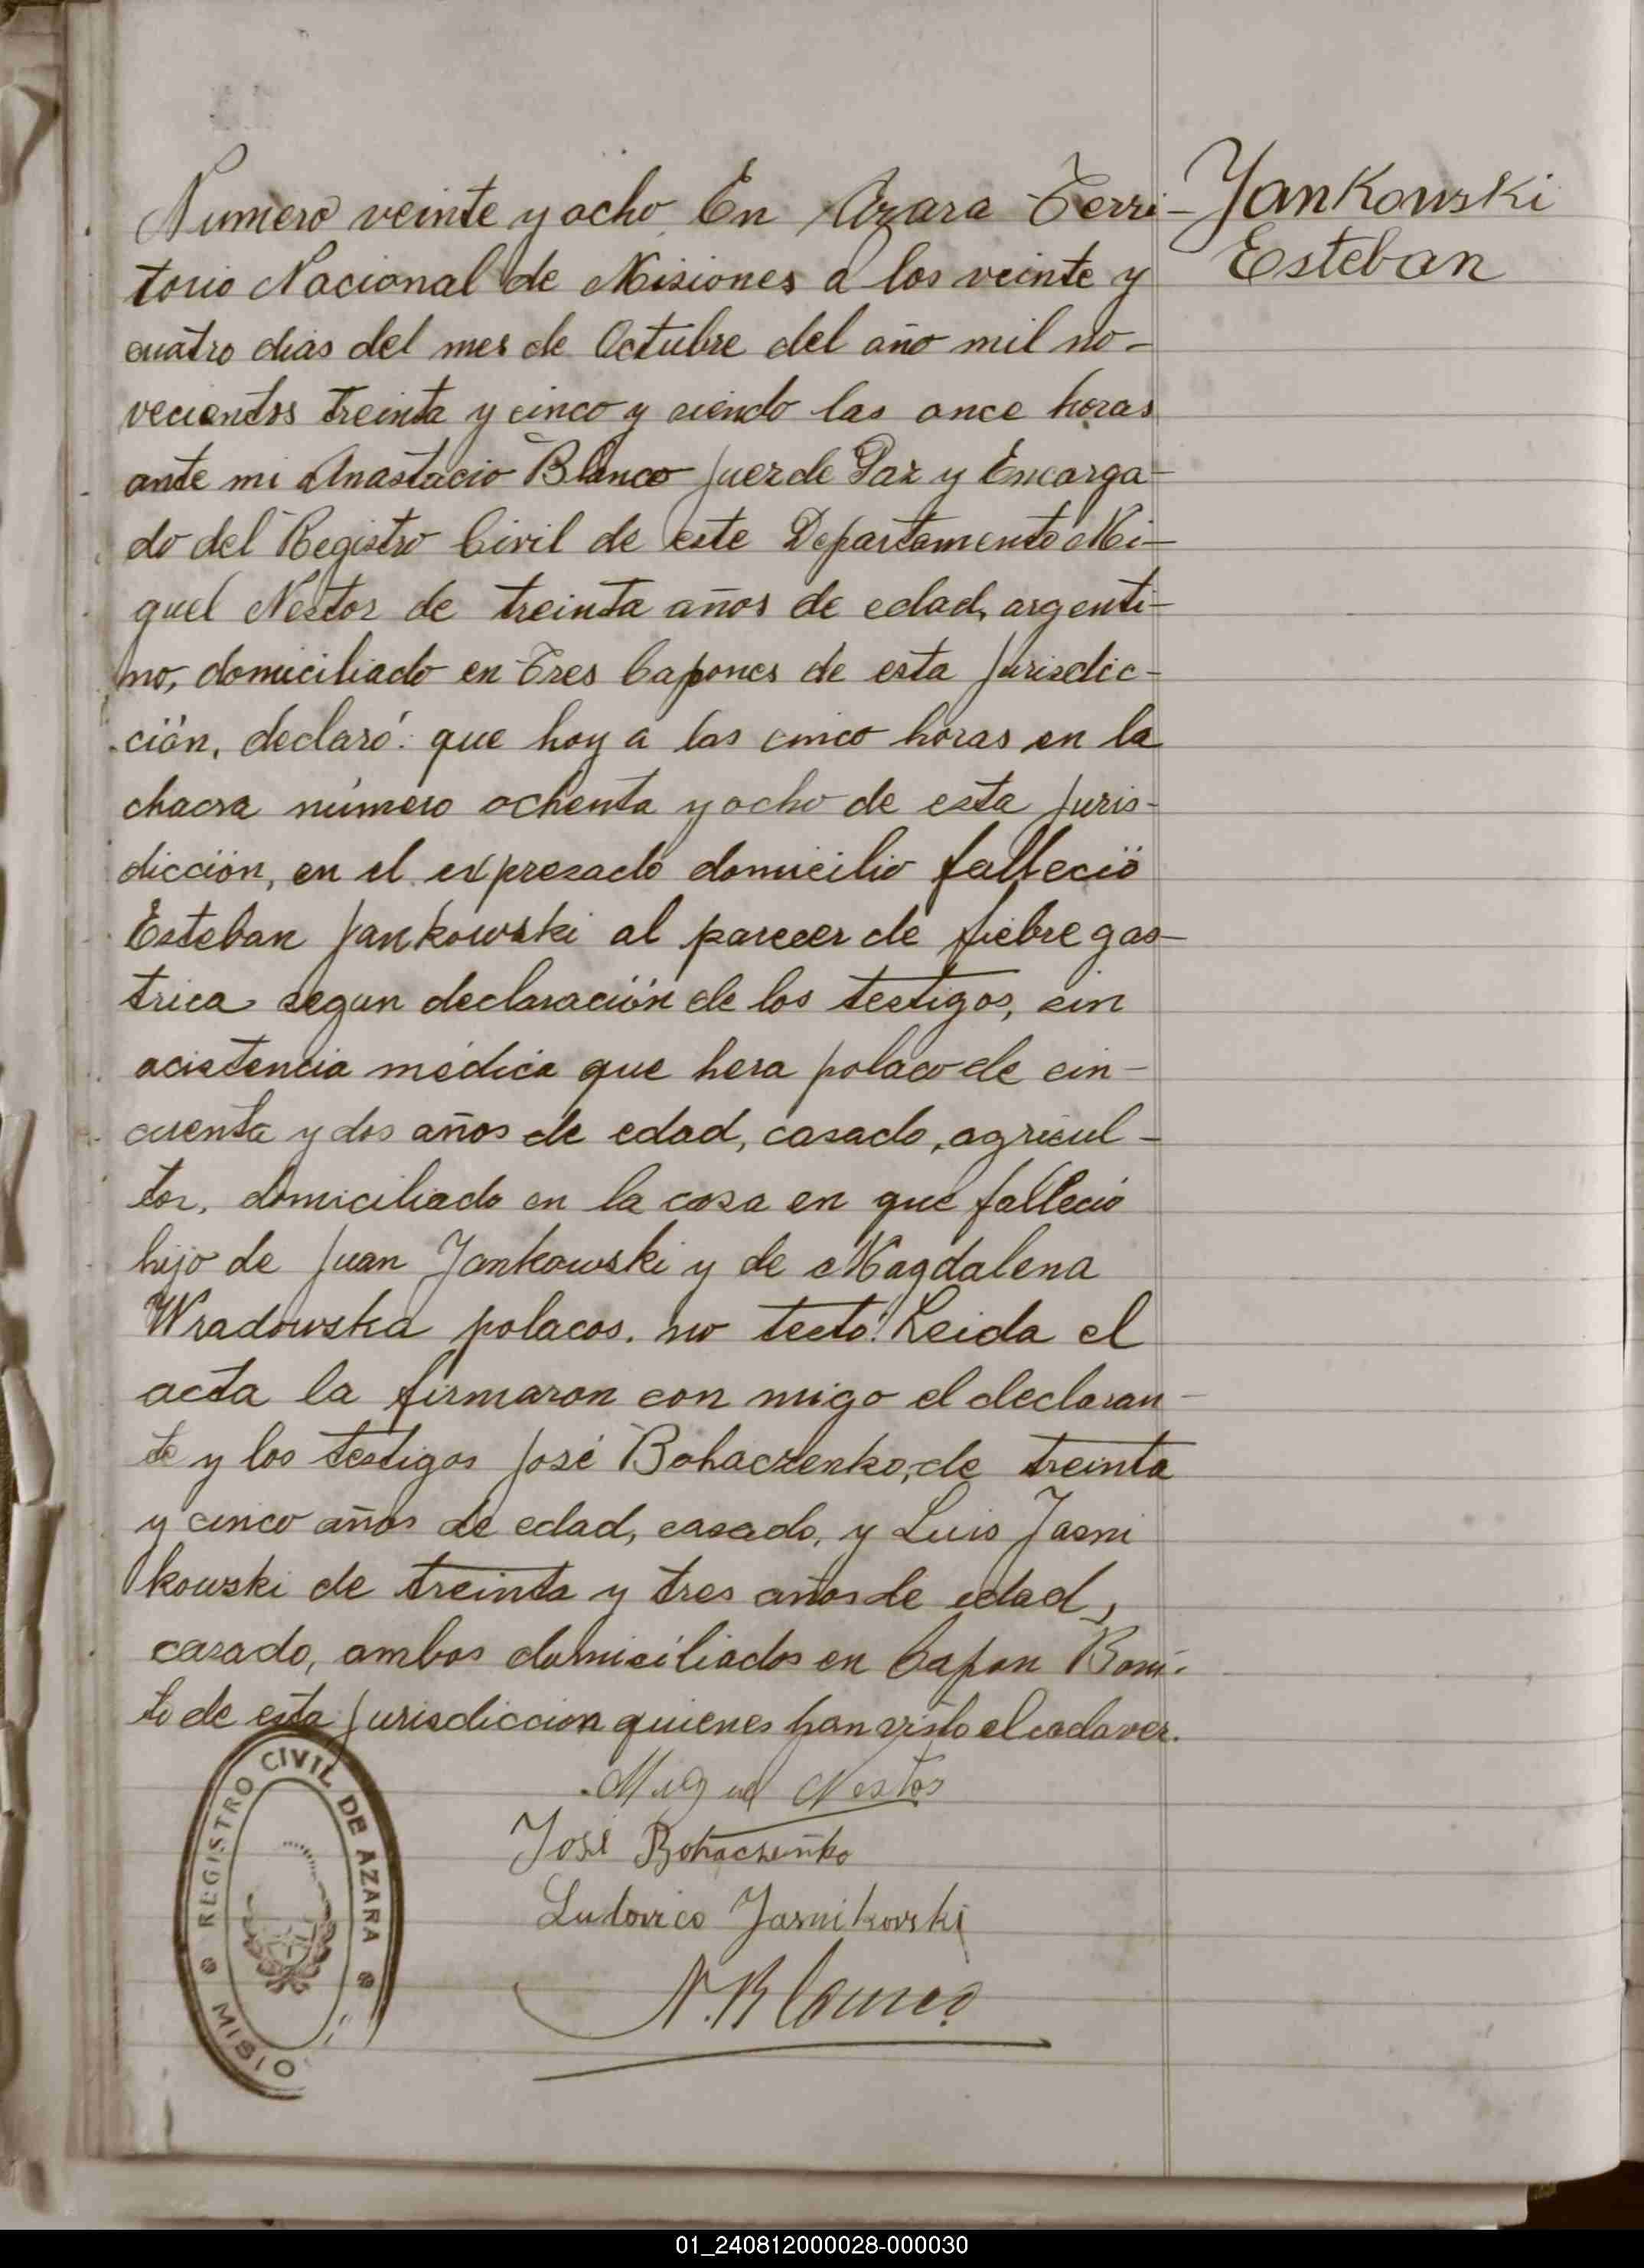 Yankowski
Esteban
Numero veinte y ocho. En Azara Terri-
torio Nacional de Misiones a los veinte y
cuatro dias del mes de Octubre del año mil no-
vecientos treinta y cinco y siendo las once horas
ante mi Anastacio Blanco Juez de Paz y Encarga-
do del Registro Civil de este Departamento Mi-
guel Nestor de treinta años de edad, argenti-
no, domiciliado en Tres Capones de esta Jurisdic-
ción, declaró: que hoy a las cinco horas en la
chacra número ochenta y ocho de esta Juris-
dicción, en el expresado domicilio falleció
Esteban Jankowski al parecer de fiebre gas-
trica segun declaración de los testigos, sin
acistencia médica que hera polaco de cin-
cuenta y dos años de edad, casado, agricul-
tor, domiciliado en la casa en que falleció
hijo de Juan Jankowski y de Magdalena
Wradowska polacos. no testó. Leida el
acta la firmaron con migo el declaran-
te y los testigos José Bohaczenko, de treinta
y cinco años de edad, casado, y Luis Jasni
kowski de treinta y tres años de edad,
casado, ambos domiciliados en Capon Boni-
to de esta Jurisdiccion quienes han visto el cadaver.
Miguel Nestor
José Bohaczeńko
Ludovico Jasnikovski
A. Blanco
REGISTRO CIVIL DE AZARA
MISIO
01_240812000028-000030